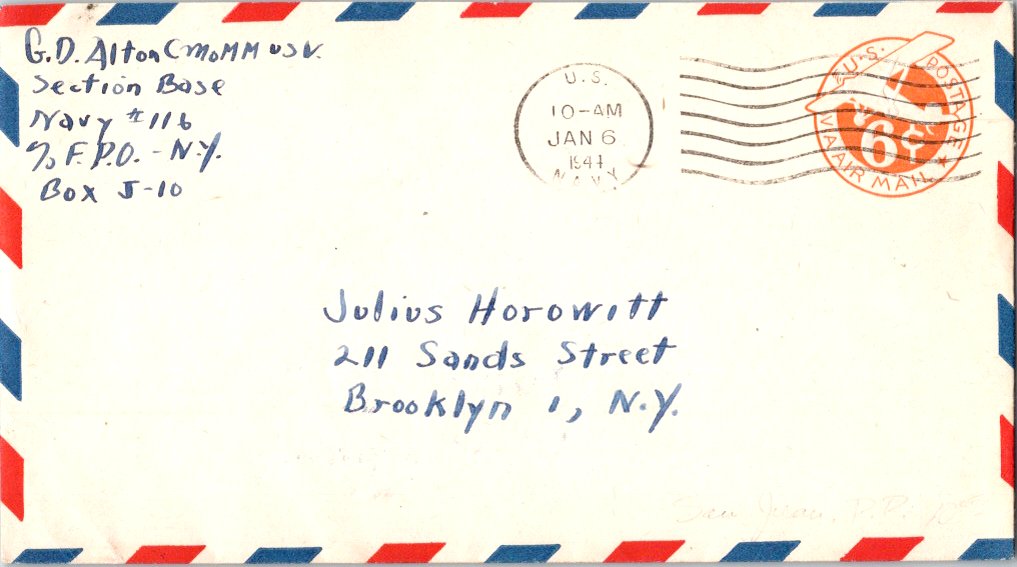 G.D. Alton CMoMM USN.
Section Base
Navy #116
c/o F.P.O. - N.Y.
Box J-10
U.S.
10-AM
JAN 6
1944
NAVY
U.S. POSTAGE
6¢
VIA AIR MAIL
Julius Horowitt
211 Sands Street
Brooklyn 1, N.Y.
San Juan, P.R.